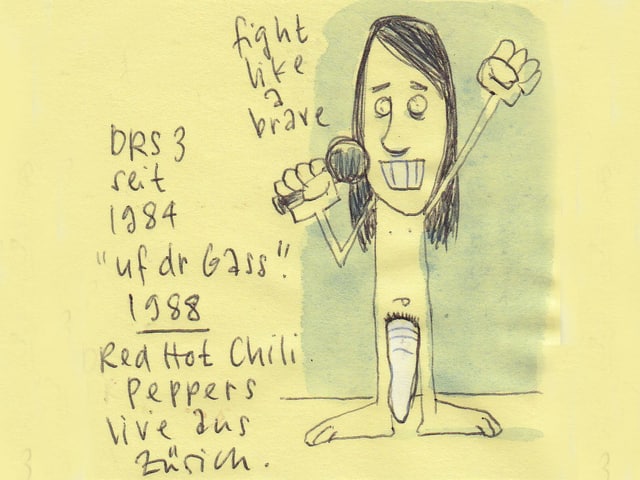 fight
like
a
brave
DRS 3
seit
1984
"uf dr Gass".
1988
Red Hot Chili
Peppers
live aus
Zürich.